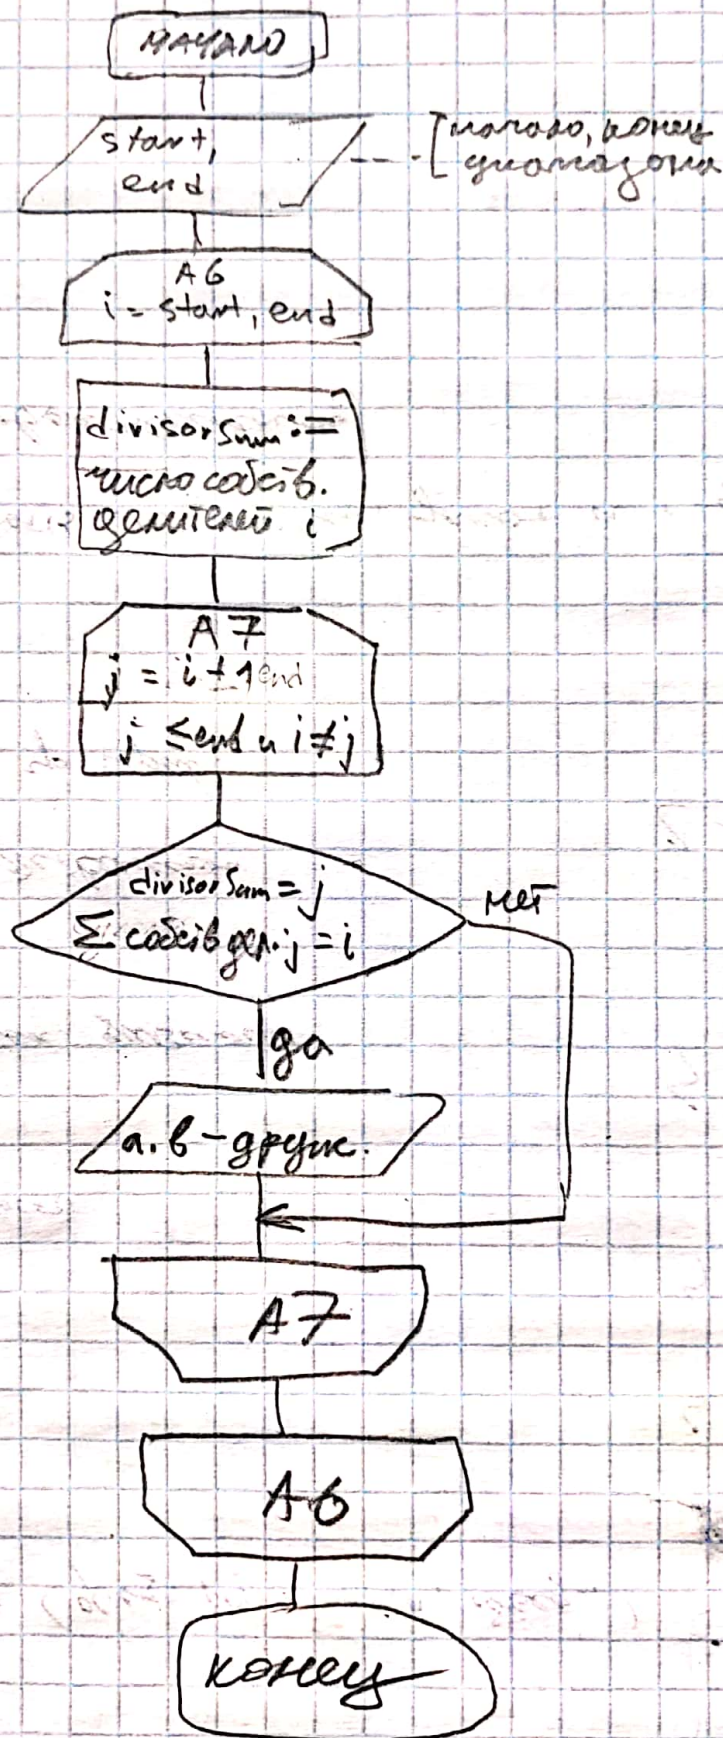 начало
start,
end
начало, конец
диапазона
A6
i = start, end
divisorSum :=
число собств.
делителей i
A7
j = i + 1 end
j ≤ end и i ≠ j
divisorSum = j
Σ собств дел. j = i
нет
да
a. в - друж.
A7
A6
конец